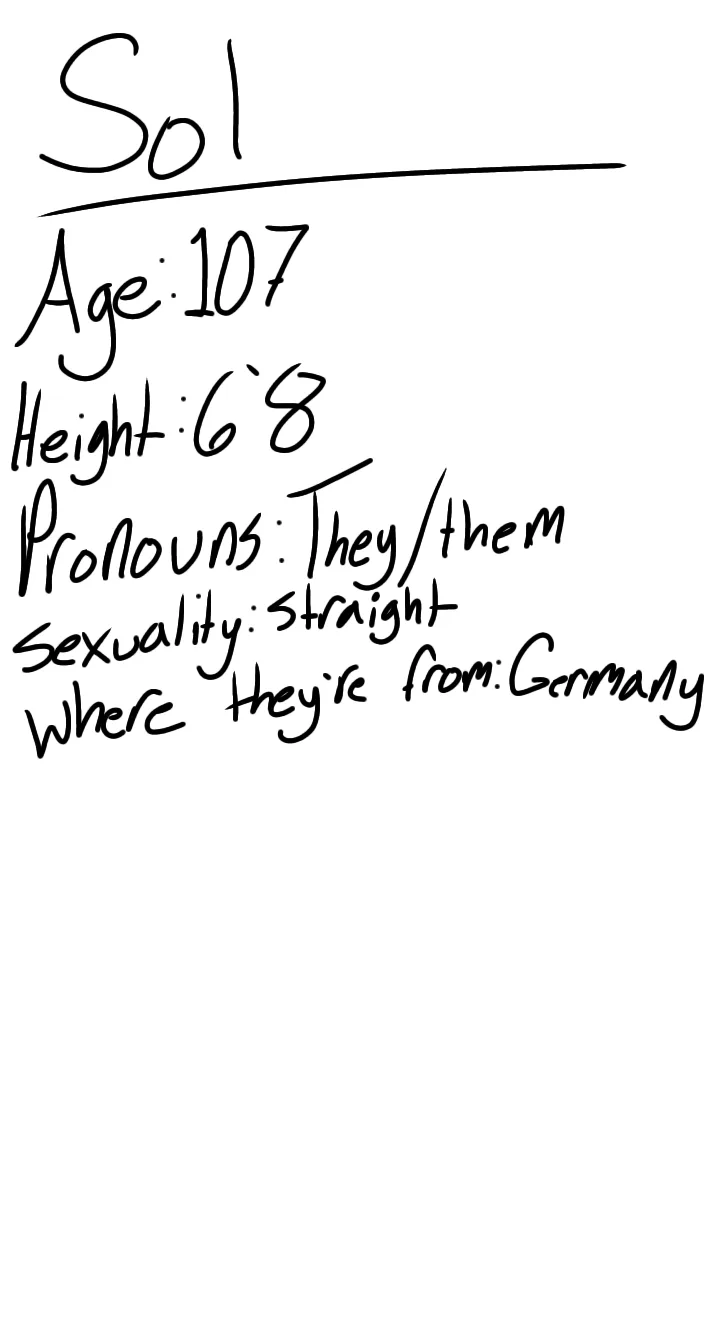 Sol
Age:107
Height:6'8
Pronouns:They/them
Sexuality:straight
Where they're from:Germany